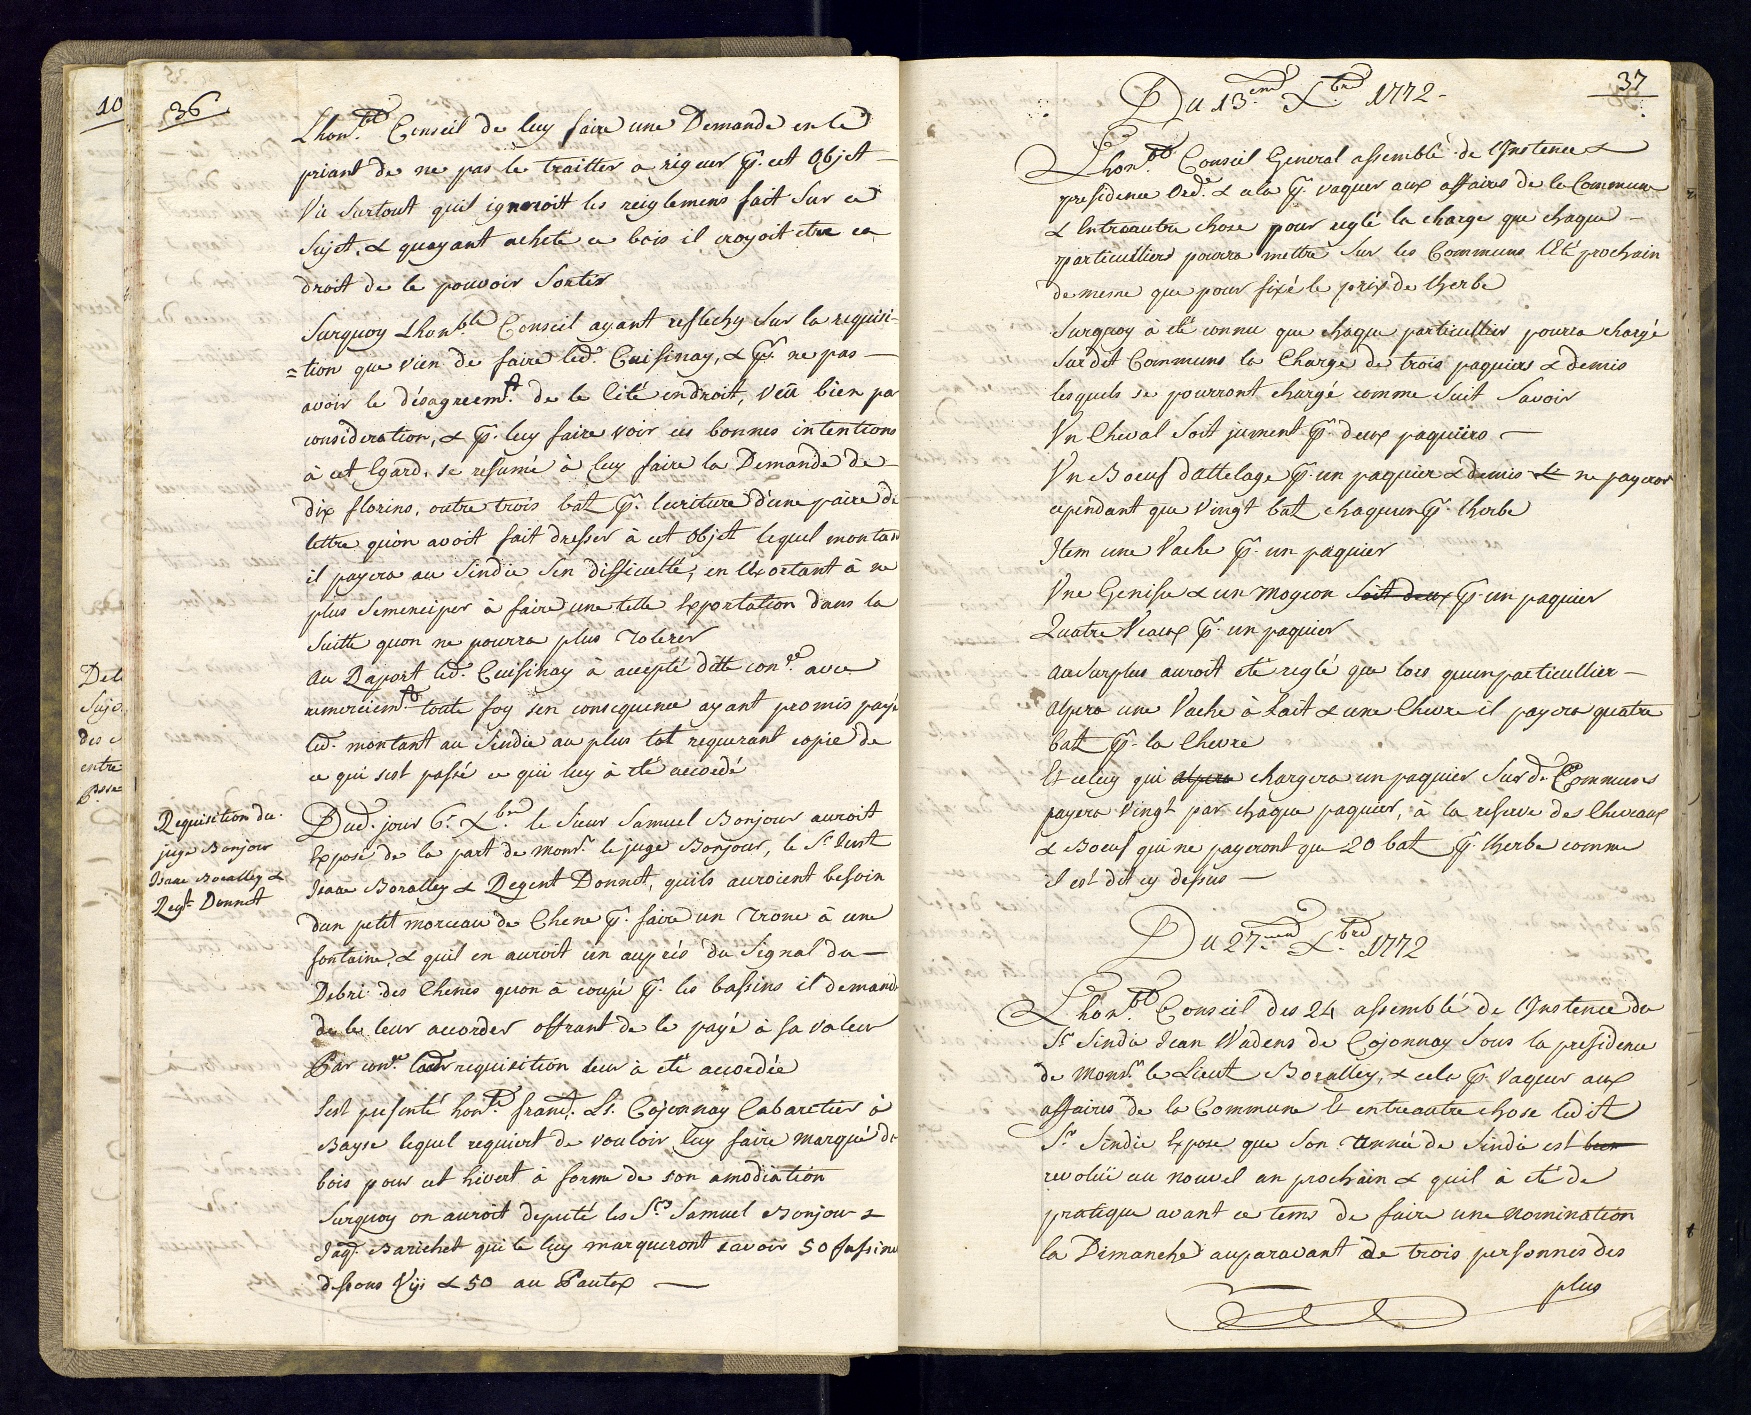 10
36.
Lhon.ble Conseil de luy faire une Demande en le
priant de ne pas le traitter a rigeur pr. cet Objet
Vû Surtout quil ignoroit les reiglemens fait Sur ce
Sujet, & quayant acheté ce bois il croyoit etre en
droit de le pouvoir Sortir
Surquoy Lhonble Conseil ayant reflechy Sur la requisi-
=tion que vien de faire led. Cuisinay, & pr. ne pas
avoir le désagreemt. de le cité endroit, veu bien par
consideration, & pr. luy faire voir ces bonnes intentions
à cet Egard, se resumé à luy faire la Demande de
dix florins, outre trois bat pr. leciture d'une paire de
lettre qu'on avoit fait dresser à cet Objet lequel montan
il payera au Sindic Sen difficulté, en Lexortant à ne
plus Semenciper à faire une telle Exportation dans la
Suitte quon ne pourra plus Tolerer
Au Raport led. Cuisinay à accepté ditte con.ce avec
remerciemt. toute foy Sen consequence ayant promis payé
led. montant au Sindic au plus tot requerant copie de
ce qui sest passé ce qui luy à eté accordé
Requisition du
juge Bonjour
Isaac Boralley &
Regt. Donnet
Dud. jour 6.e Xbre le Sieur Samuel Bonjour auroit
Exposé de la part de Monsr. le juge Bonjour, le Sr. Just
Isaac Boralley & Regent Donnet, quils auroient besoin
dun petit morceau de Chene pr. faire un Trone à une
fontaine, & quil en auroit un auprés du Signal du
Debri des Chenes quon à coupé pr. les bassins il demand
de les leur accorder offrant de le payé à sa valeur
Par con.ce ladt requisition leur à eté accordée
Sest presenté hon.ble Franct. Ls. Cojonnay Cabaretier à
Bayse lequel requiert de vouloir luy faire marqué du
bois pour cet hivert à forme de son amodiation
Surquoy on auroit deputé les Srs Samuel Bonjour &
Jaq. Barichet qui le luy marqueront savoir 50 fassine
dessous Vÿi & 50 au Pautex
37
Du 13.eme Xbre 1772
Lhon.ble Conseil General assemblé de l'Instence &
presidence Ord.e & cela pr. vaquer aux affaires de la Commune
& Entreautre chose pour reglé la charge que chaque
particuillier pourra mettre Sur les Communs l'Eté prochain
de meme que pour fixé le prix de Lherbe
Surquoy à eté connu que chaque particuillier poura chargé
Sur dit Communs la Charge de trois paquiers & demis
lesquels se pourront chargé comme Suit Savoir
Un Cheval Soit jument pr. deux paquiers
Un Boeuf dattelage pr. un paquier & demis & ne payeron
cependant que Vingt bat chaquun pr. lherbe
Item une Vache pr. un paquier
Une Genisse & un Mogeon Soit deux pr. un paquier
Quatre Veaux pr. un paquier
Au Surplus auroit eté reglé que lors quun particullier
alpera une Vache à Lait & une Chevre il payera quatre
bat pr. la Chevre
Et celuy qui alpera chargera un paquier Sur d. Communs
payera Vingt par chaque paquier, à la reserve des Chevaux
& Boeuf qui ne payeront que 20 bat pr. lherbe comme
il est dit cy dessus
Du 27.eme Xbre 1772
Lhon.ble Conseil des 24 assemblé de l'Instence du
Sr. Sindic Jean Vuadens de Cojonnay Sous la presidence
de Monsr. le Lieut Boralley, & cela pr. vaquer aux
affaires de la Commune Et entreautre chose ledit
Sr. Sindic Expose que Son Année de Sindic est bien
revolüe au nouvel an prochain & quil à eté de
pratique avant ce tems de faire une Nomination
la Dimanche auparavant de trois personnes des
plus